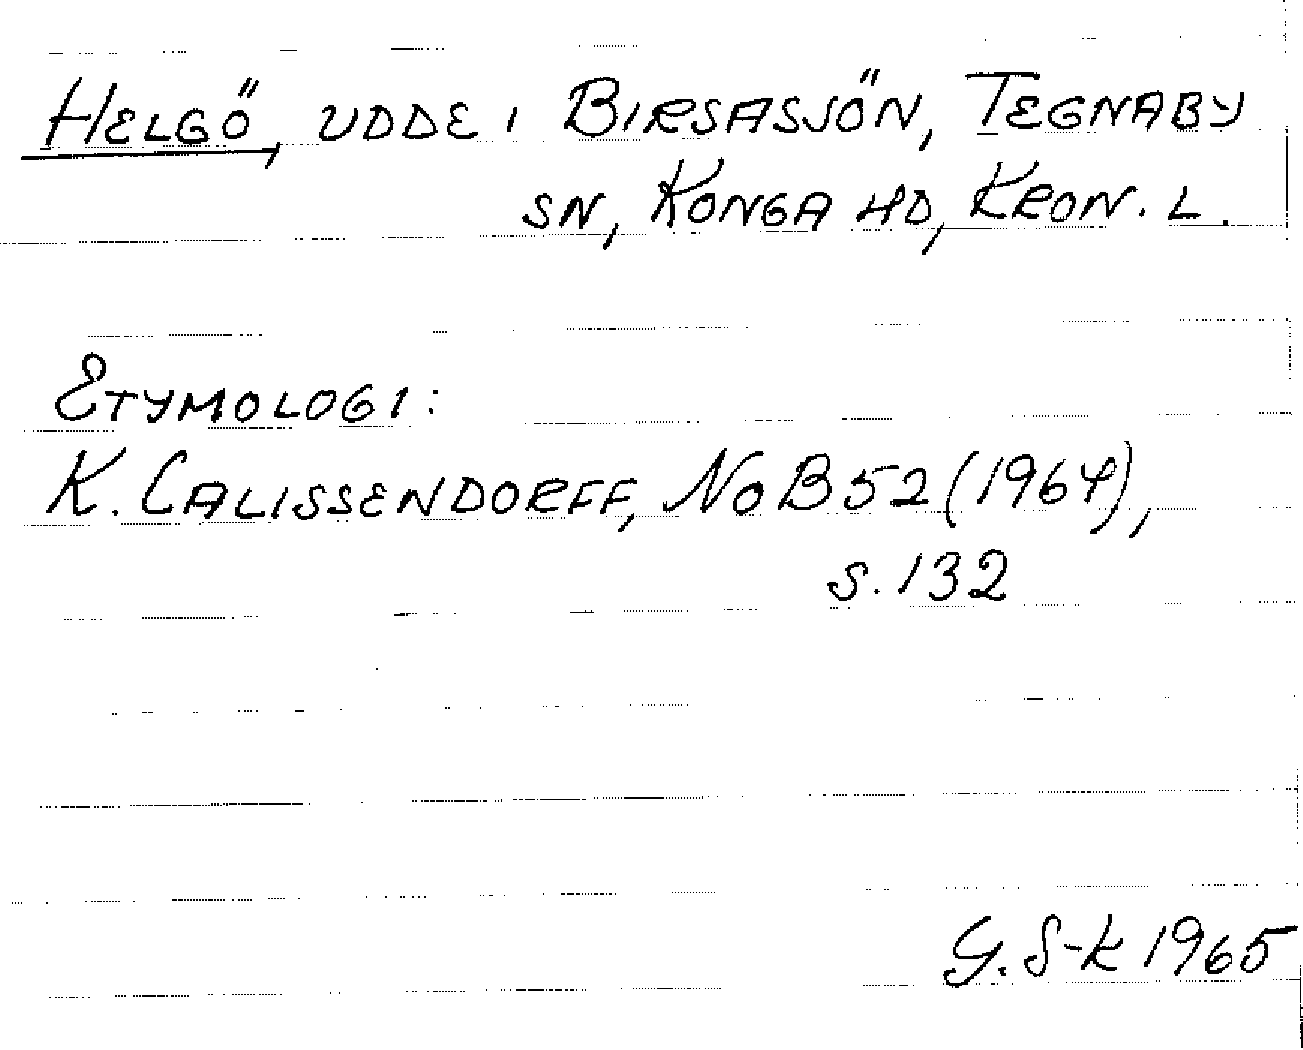 HELGÖ, UDDE I BIRSASJÖN, TEGNABY
SN, KONGA HD, KRON. L.
ETYMOLOGI:
K. CALISSENDORFF, NoB 52 (1964),
s. 132
G. S-k 1965